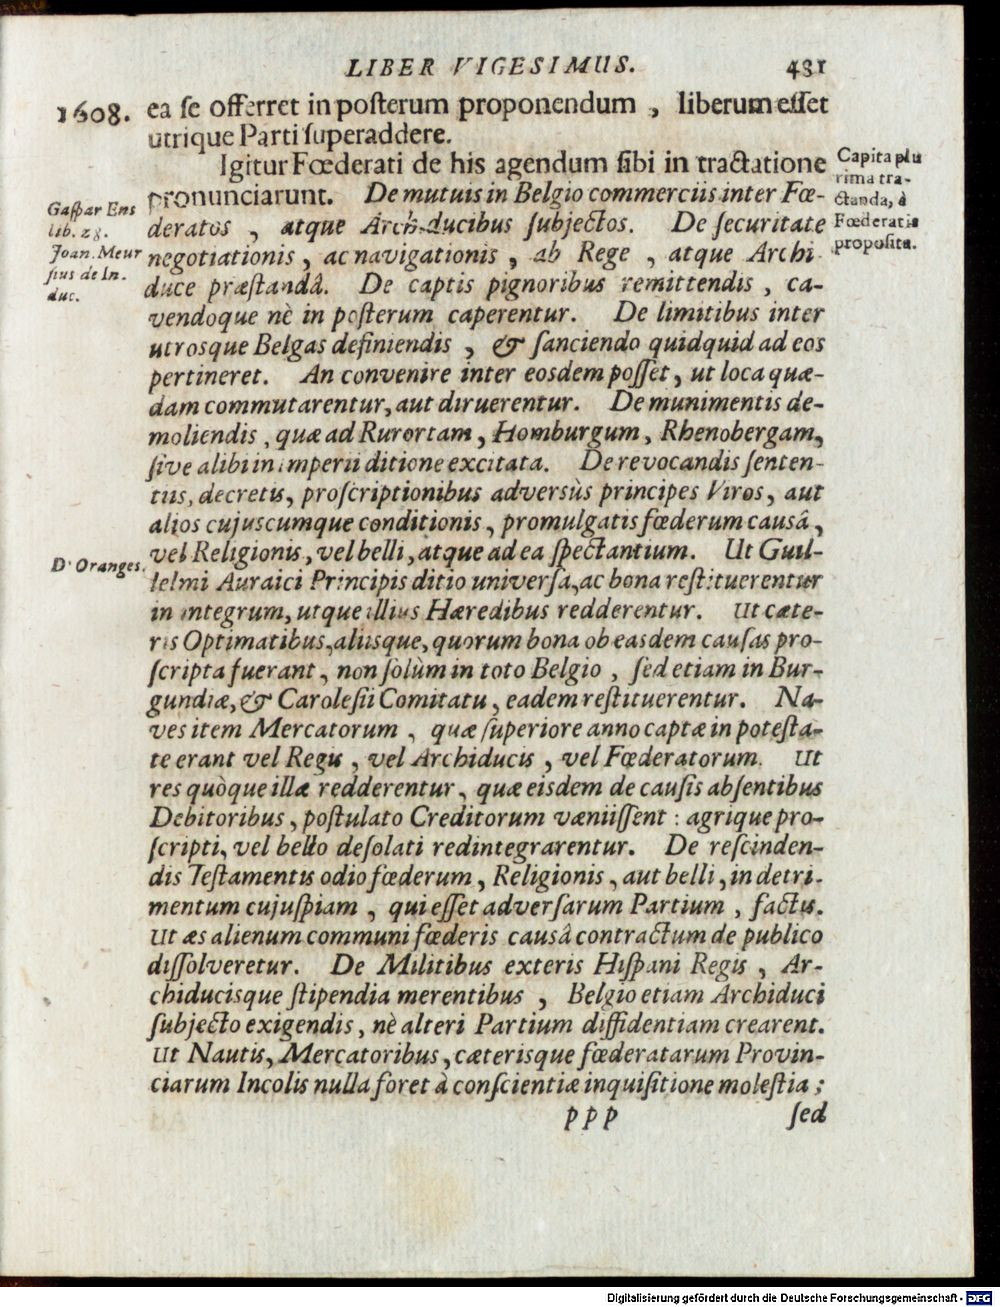 LIBER VIGESIMUS. 481
1608. ea se offerret in posterum proponendum, liberum esset
utrique Parti superaddere.
Igitur Fœderati de his agendum sibi in tractatione
pronunciarunt. De mutuis in Belgio commerciis inter Fœ-
deratos, atque Archiducibus subjectos. De securitate
negotiationis, ac navigationis, ab Rege, atque Archi
duce præstandâ. De captis pignoribus remittendis, ca-
vendoque nè in posterum caperentur. De limitibus inter
utrosque Belgas definiendis, & sanciendo quidquid ad eos
pertineret. An convenire inter eosdem posset, ut loca quæ-
dam commutarentur, aut diruerentur. De munimentis de-
moliendis, quæ ad Rurortam, Homburgum, Rhenobergam,
sive alibi in imperii ditione excitata. De revocandis senten-
tiis, decretis, proscriptionibus adversùs principes Viros, aut
alios cujuscumque conditionis, promulgatis fœderum causâ,
vel Religionis, vel belli, atque ad ea spectantium. Ut Guil-
lelmi Auraici Principis ditio universa, ac bona restituerentur
in integrum, utque illius Hæredibus redderentur. Ut cæte-
ris Optimatibus, aliisque, quorum bona ob easdem causas pro-
scripta fuerant, non solùm in toto Belgio, sed etiam in Bur-
gundiæ, & Carolesii Comitatu, eadem restituerentur. Na-
ves item Mercatorum, quæ superiore anno captæ in potesta-
te erant vel Regis, vel Archiducis, vel Fœderatorum. Ut
res quòque illæ redderentur, quæ eisdem de causis absentibus
Debitoribus, postulato Creditorum væniissent: agrique pro-
scripti, vel bello desolati redintegrarentur. De rescinden-
dis Testamentis odio fœderum, Religionis, aut belli, in detri-
mentum cujuspiam, qui esset adversarum Partium, factis.
Ut æs alienum communi fœderis causâ contractum de publico
dissolveretur. De Militibus exteris Hispani Regis, Ar-
chiducisque stipendia merentibus, Belgio etiam Archiduci
subjecto exigendis, nè alteri Partium diffidentiam crearent.
Ut Nautis, Mercatoribus, cæterisque fœderatarum Provin-
ciarum Incolis nulla foret à conscientiæ inquisitione molestia;
ppp sed
Capita plu
rima tra-
ctanda, à
Fœderatis
proposita.
Gaspar Ens
lib. 28.
Joan. Meur
sius de In.
duc.
D' Oranges.
Digitalisierung gefördert durch die Deutsche Forschungsgemeinschaft - DFG